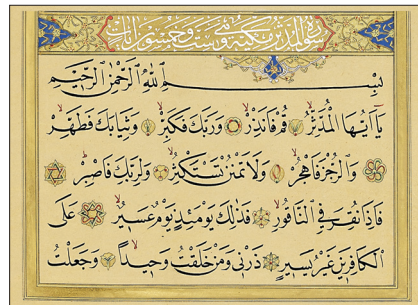 سورة المدثر مكية وهي ست وخمسون آيات
بِسْمِ اللهِ الرَّحْمٰنِ الرَّحِيمِ
يَا أَيُّهَا الْمُدَّثِّرُ قُمْ فَأَنْذِرْ وَرَبَّكَ فَكَبِّرْ وَثِيَابَكَ فَطَهِّرْ
وَالرُّجْزَ فَاهْجُرْ وَلَا تَمْنُنْ تَسْتَكْثِرُ وَلِرَبِّكَ فَاصْبِرْ
فَإِذَا نُقِرَ فِي النَّاقُورِ فَذٰلِكَ يَوْمَئِذٍ يَوْمٌ عَسِيرٌ عَلَى
الْكَافِرِينَ غَيْرُ يَسِيرٍ ذَرْنِي وَمَنْ خَلَقْتُ وَحِيدًا وَجَعَلْتُ